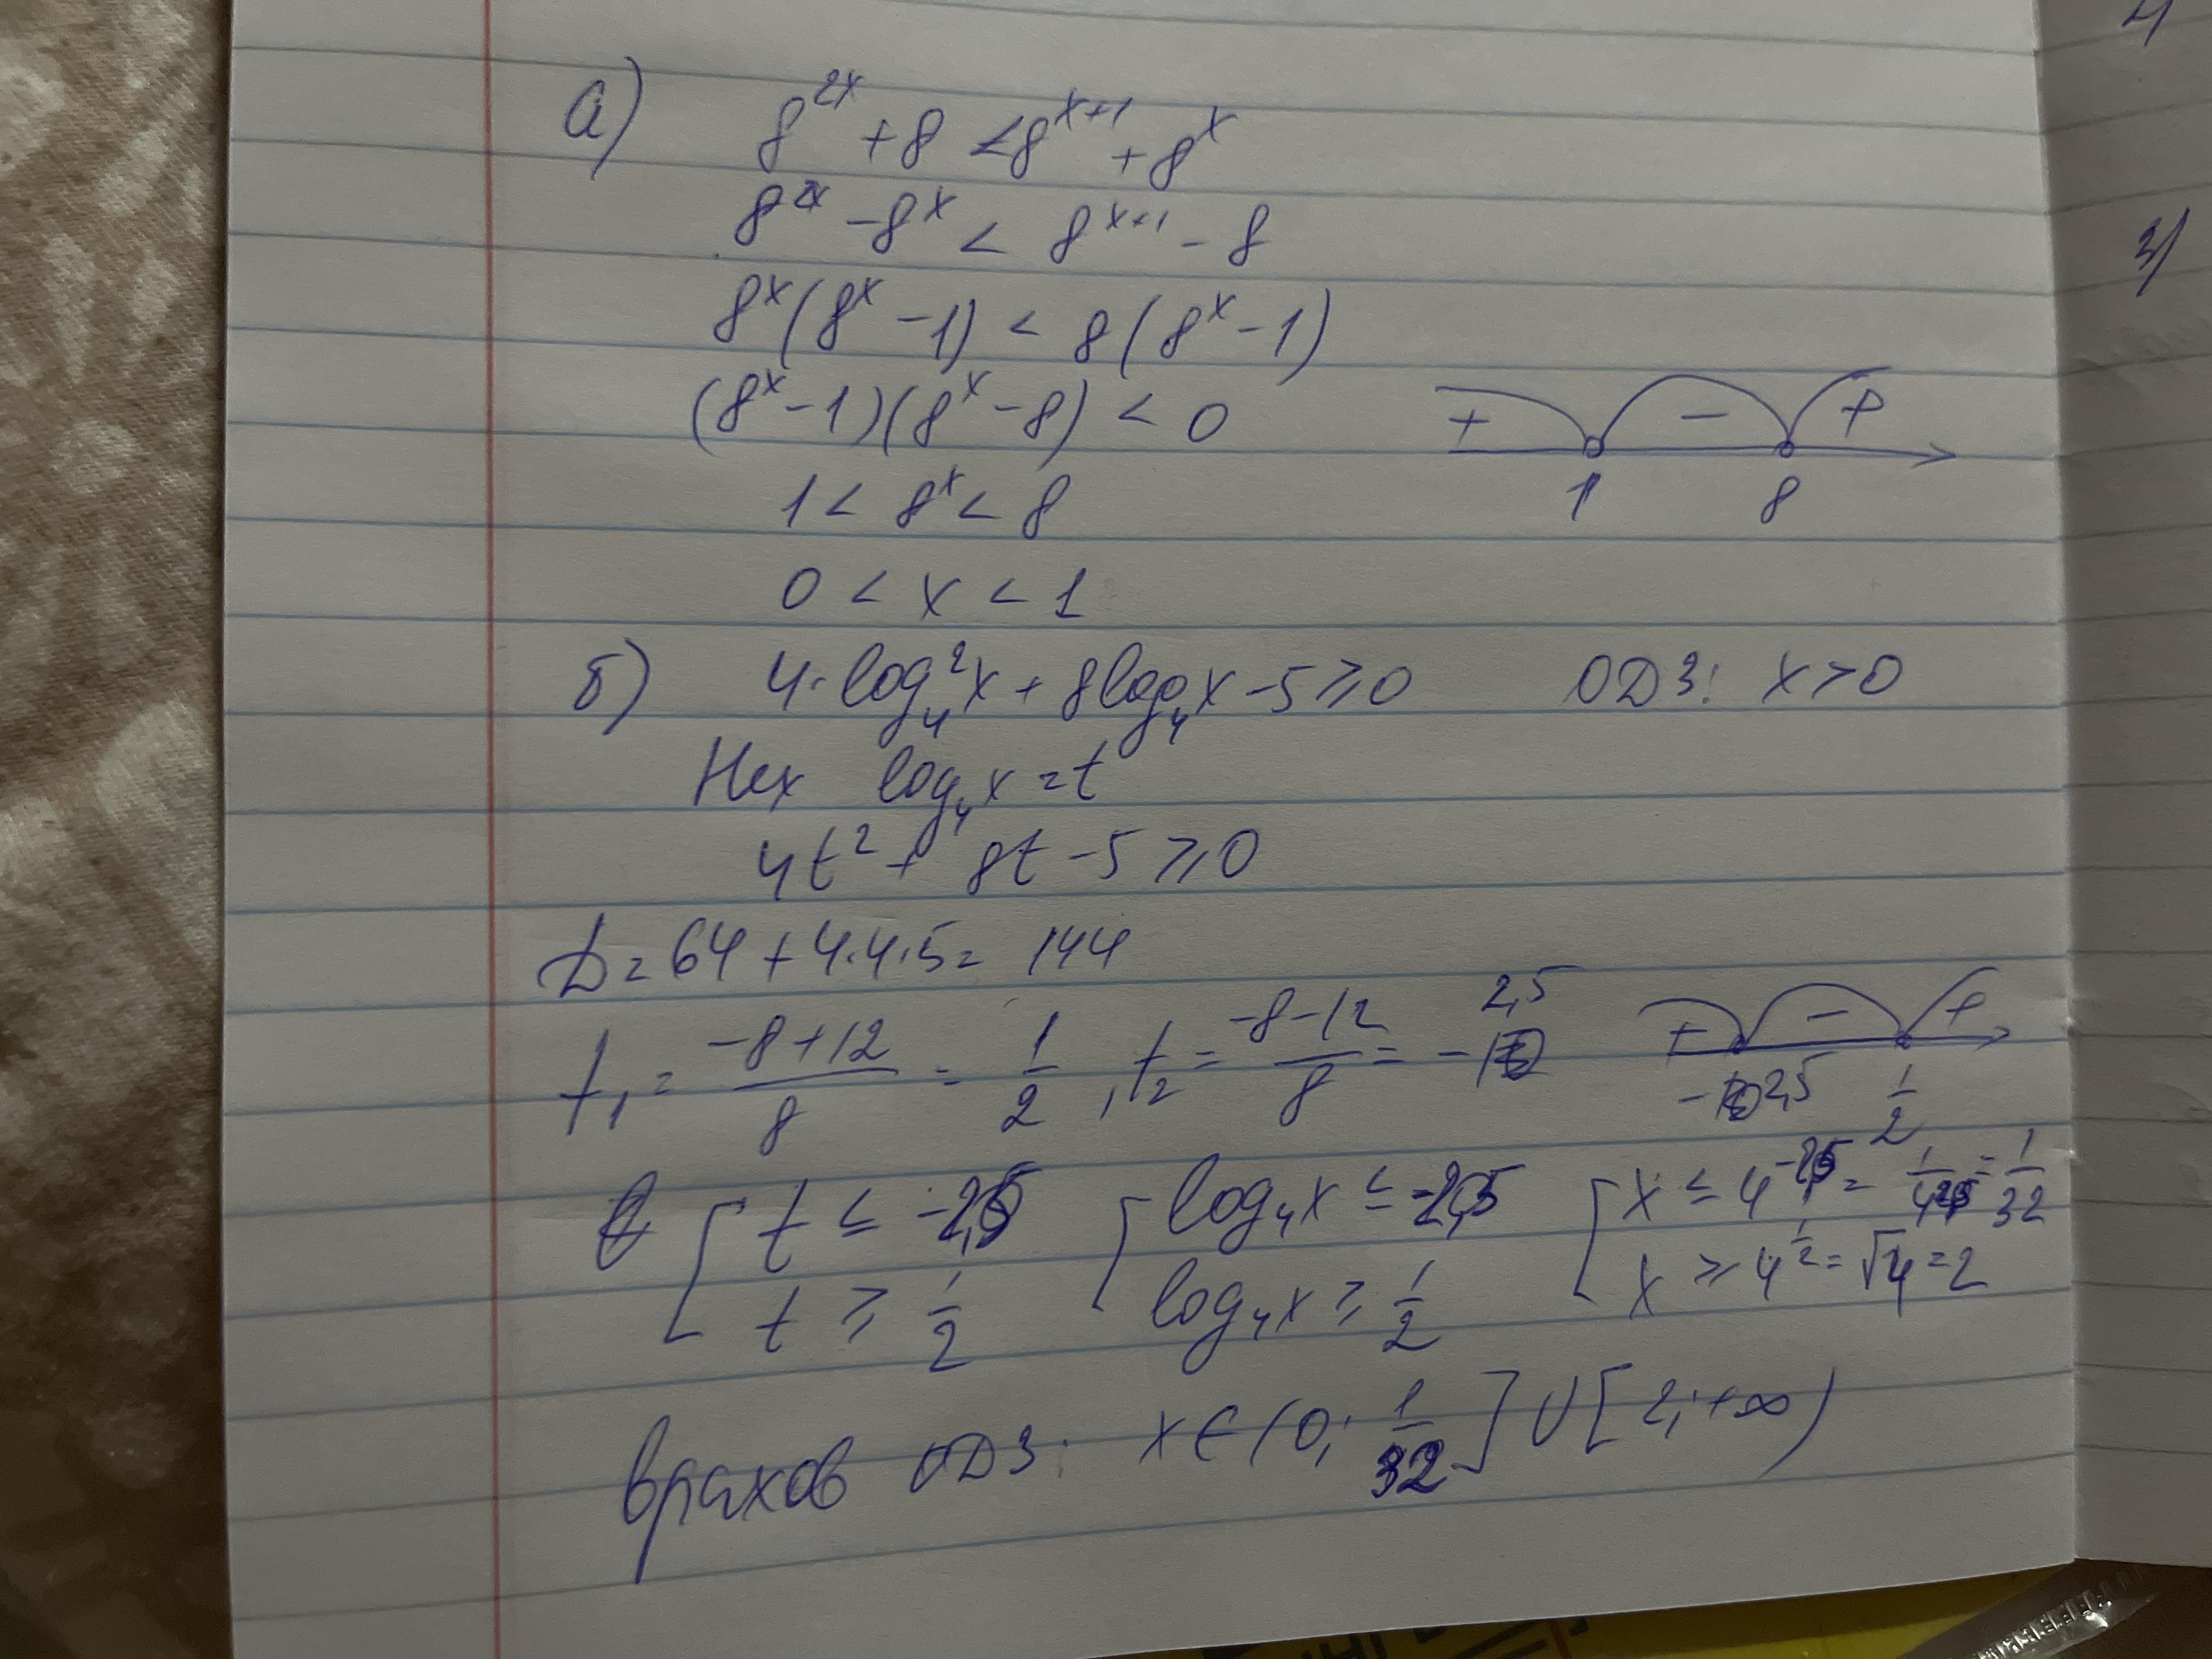 а) 8^{2x} + 8 < 8^{x+1} + 8^x
8^{2x} - 8^x < 8^{x+1} - 8
8^x (8^x - 1) < 8 (8^x - 1)
(8^x - 1)(8^x - 8) < 0
+ - +
1 8
1 < 8^x < 8
0 < x < 1
б) 4·log₄²x + 8log₄x - 5 ⩾ 0 ОДЗ: x > 0
Нех log₄x = t
4t² + 8t - 5 ⩾ 0
D = 64 + 4·4·5 = 144
t₁ = (-8+12)/8 = 1/2, t₂ = (-8-12)/8 = -2,5
+ - +
-2,5 1/2
[ t ≤ -2,5 [ log₄x ≤ -2,5 [ x ≤ 4^{-2,5} = 1/4^{2,5} = 1/32
t ⩾ 1/2 log₄x ⩾ 1/2 x ⩾ 4^{1/2} = √4 = 2
врахов ОДЗ: x ∈ (0; 1/32] ∪ [2; +∞)
2)